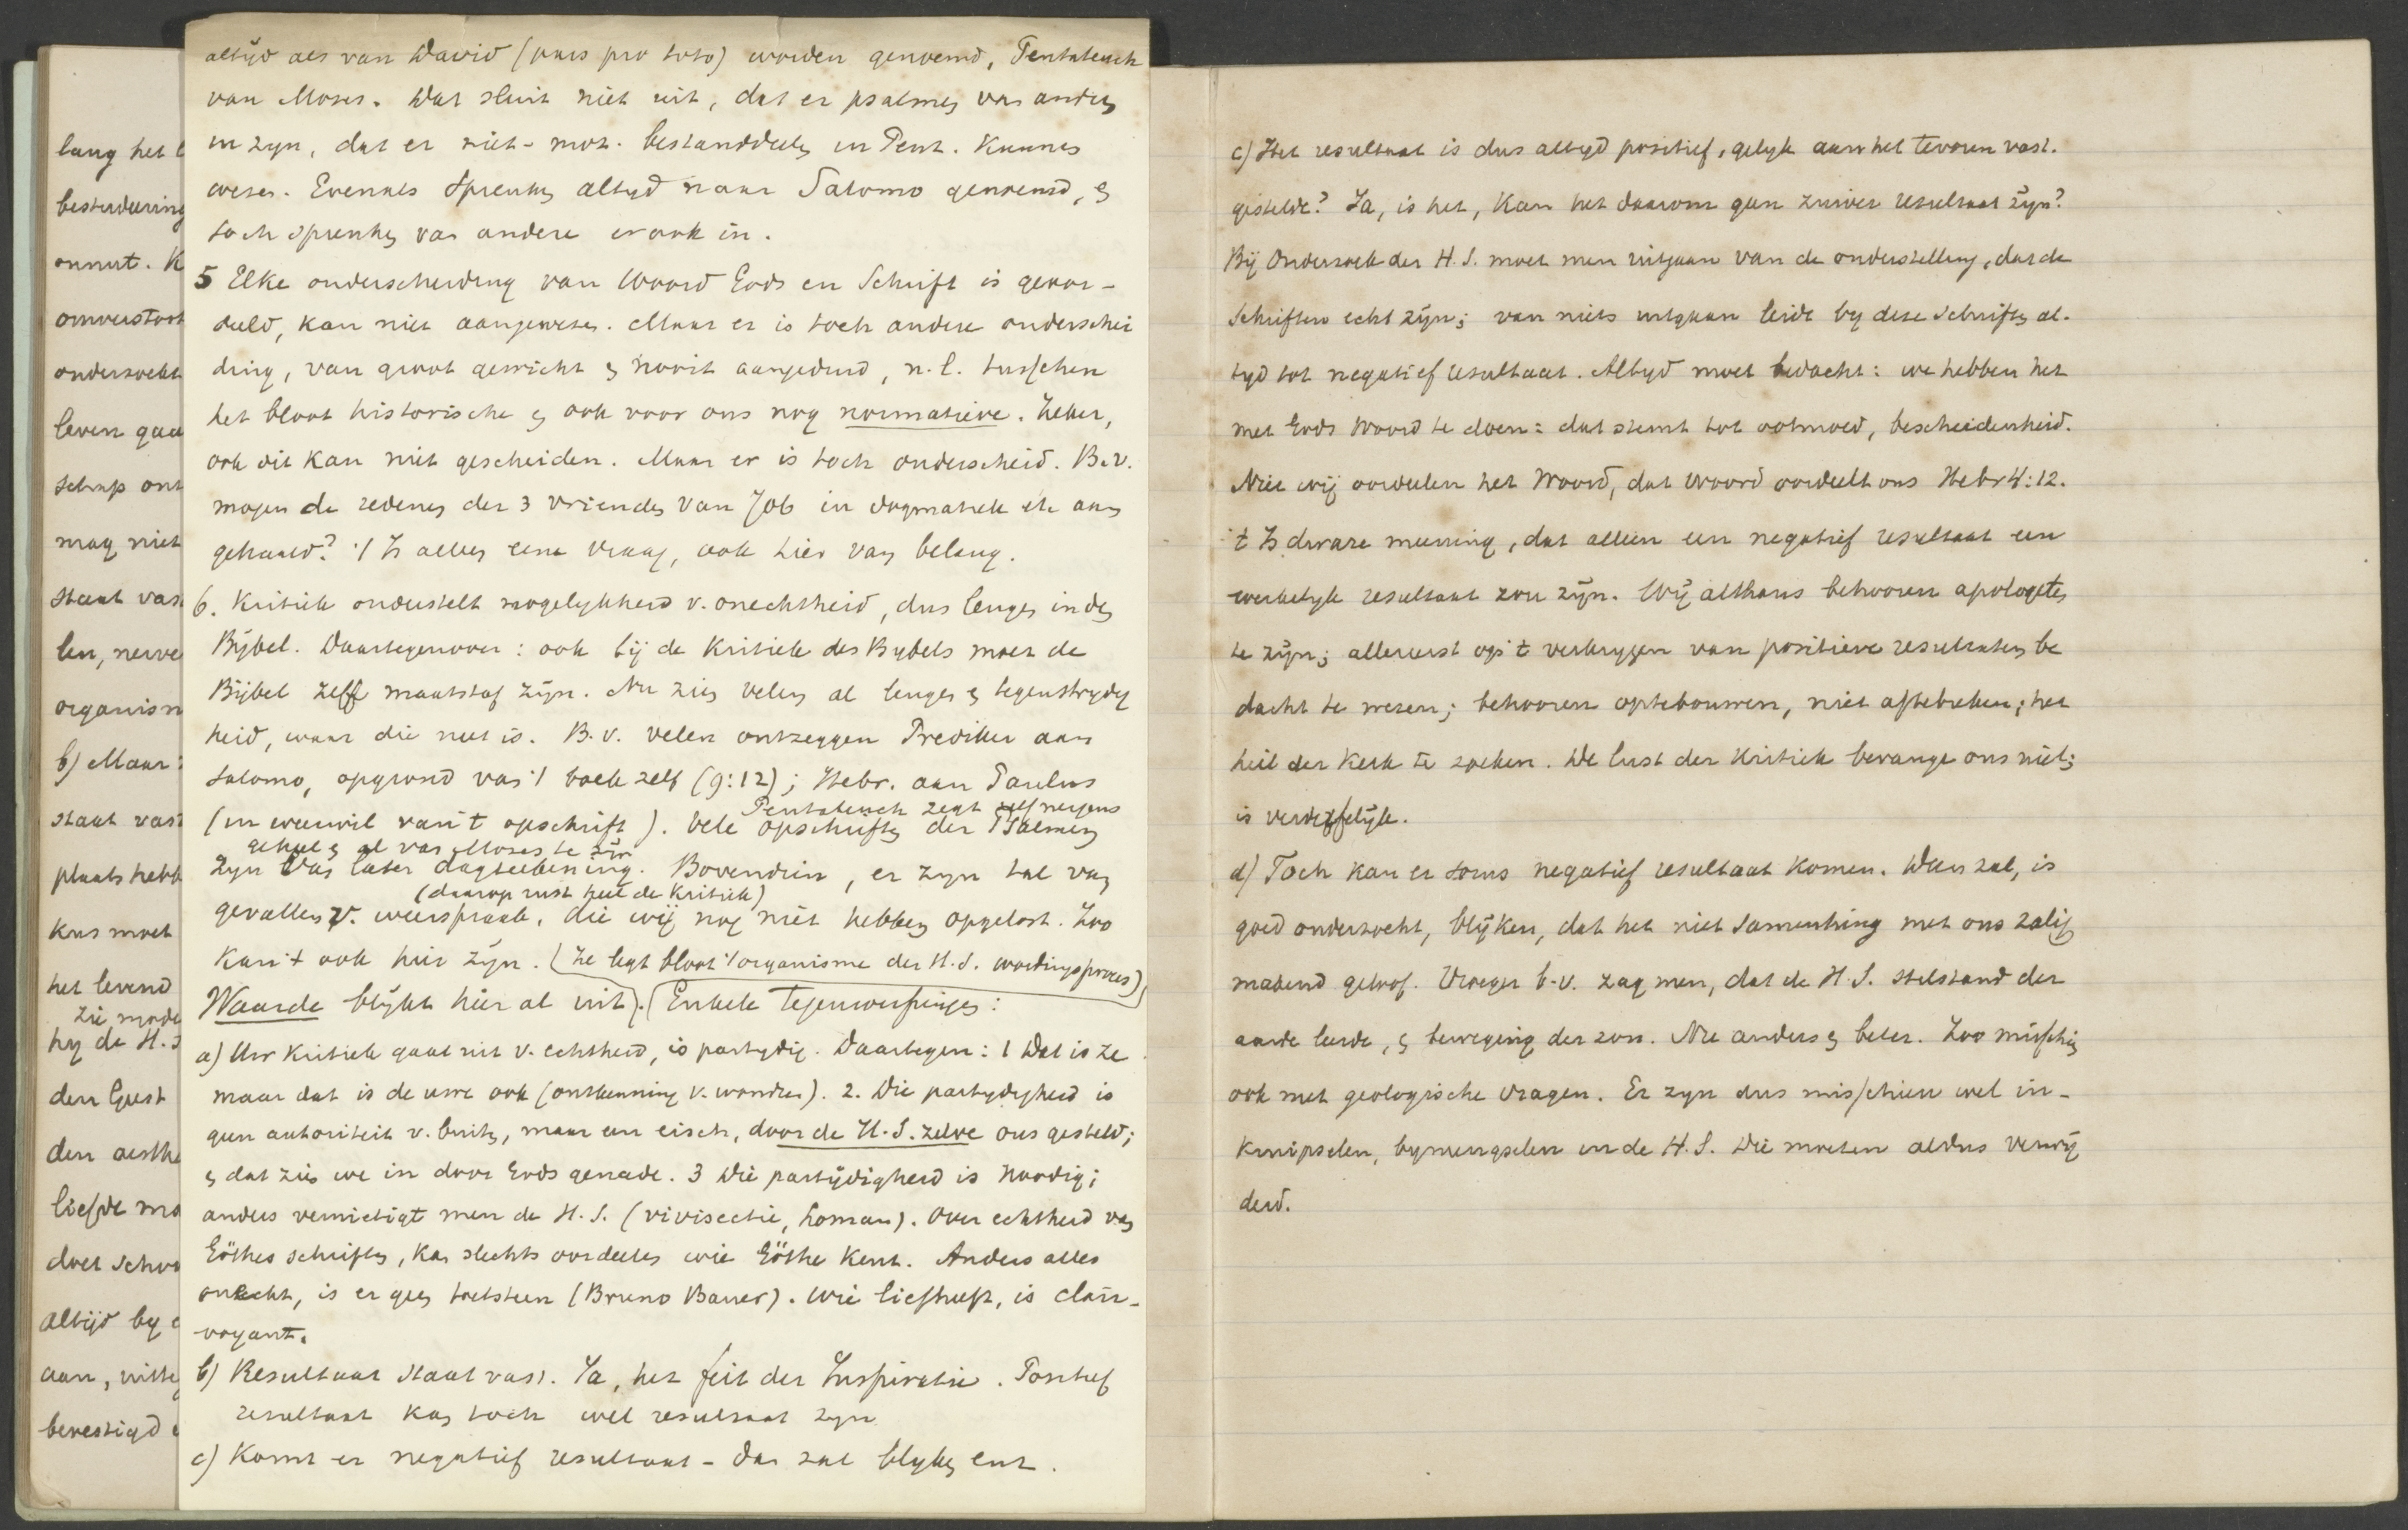 lang het
bestudeering
onnut. K
omverstoot
onderzoekt
leven gaa
schap ont
mag niet
staat vas
len, nerve
organism
b) Maar
staat vast
plaats hebb
kus moet
het levend
zie, mode
hy de H.S
den Geest
den aesthe
liefde mo
doet schoo
altijd by
aan, uitte
bevestigd
altijd als van David (pars pro toto) worden genoemd, Pentateuch
van Moses. Dat sluit niet uit, dat er psalmen van anderen
in zyn, dat er niet-moz. bestanddeelen in Pent. Kunnen
wezen. Evenals Spreuken altyd naar Salomo genoemd, en
toch spreuken van andere er ook in.
5 Elke onderscheiding van Woord Gods en Schrift is geoor-
deeld, kan niet aangewezen. Maar er is toch andere onderschei
ding, van groot gewicht en nooit aangeduid, n.l. tusschen
het bloot historische en ook voor ons nog normatieve. Zeker,
ook dit kan niet gescheiden. Maar er is toch onderscheid. B.v.
mogen de redenen der 3 vrienden van Job in dogmatiek etc aan
gehaald? 't Is alleen eene vraag, ook hier van belang.
6. Kritiek onderstelt mogelykheid v. onechtheid, dus leugen in den
Bijbel. Daartegenover: ook bij de Kritiek des Bybels moet de
Bijbel zelf maatstaf zijn. Nu zien velen al leugen en tegenstrydig
heid, waar die niet is. B.v. velen ontzeggen Prediker aan
Salomo, opgrond van 't boek zelf (9:12); Hebr. aan Paulus
Pentateuch zegt zelf nergens
(in weerwil van 't opschrift). Vele opschriften der Psalmen
geheel en al van Moses te zijn
zyn van later dagteekening. Bovendien, er zyn tal van
(daarop rust heel de Kritiek)
gevallen v. weerspraak, die wij nog niet hebben opgelost. Zoo
kan 't ook hier zijn. (Ze legt bloot 't organisme der H.S. wordingsproces)
Waarde blijkt hier al uit). Enkele Tegenwerpingen:
a) Uw Kritiek gaat uit v. echtheid, is partydig. Daartegen: 1 Dat is ze
maar dat is de uwe ook (ontkenning v. wonder). 2. Die partydigheid is
geen autoriteit v. buiten, maar een eisch, door de H.S. zelve ons gesteld;
en dat zien we in door Gods genade. 3 Die partijdigheid is Noodig;
anders vernietigt men de H.S. (vivisectie, Loman). Over echtheid van
Göthes schriften, kan slechts oordeelen wie Göthe Kent. Anders alles
onecht, is er geen toetssteen (Bruno Bauer). Wie liefheeft, is clair-
voyant.
b) Resultaat staat vast. Ja, het feit der Inspiratie. Positief
resultaat kan toch wel resultaat zyn
c) Komt er negatief resultaat - dan zal blyken enz.
c) Het resultaat is dus altyd positief, gelyk aan het tevoren vast.
gestelde? Ja, is het, Kan het daarom geen zuiver resultaat zijn?
Bij Onderzoek der H.S. moet men uitgaan van de onderstelling, dat de
Schriften echt zijn; van niets uitgaan leidt by deze schriften al-
tyd tot negatief resultaat. Altyd moet bedacht: we hebben het
met Gods Woord te doen: dat stemt tot ootmoed, bescheidenheid.
Niet wij oordeelen het Woord, dat Woord oordeelt ons Hebr 4:12.
't Is dwaze meening, dat alleen een negatief resultaat een
werkelyk resultaat zou zijn. Wij althans behooren apologeten
te zijn; allereerst op 't verkrygen van positieve resultaten be
dacht te wezen; behooren optebouwen, niet aftebreken; het
heil der Kerk te zoeken. De lust der Kritiek bevange ons niet;
is verderfelijk.
d) Toch kan er soms negatief resultaat komen. Dan zal, is
goed onderzocht, blijken, dat het niet samenhing met ons zalig
makend geloof. Vroeger b.v. zag men, dat de H.S. stilstand der
aarde leerde, en beweging der zon. Nu anders en beter. Zoo misschien
ook met geologische vragen. Er zyn dus misschien wel in-
kruipselen, bymengselen in de H.S. Die moeten aldus verwij
derd.